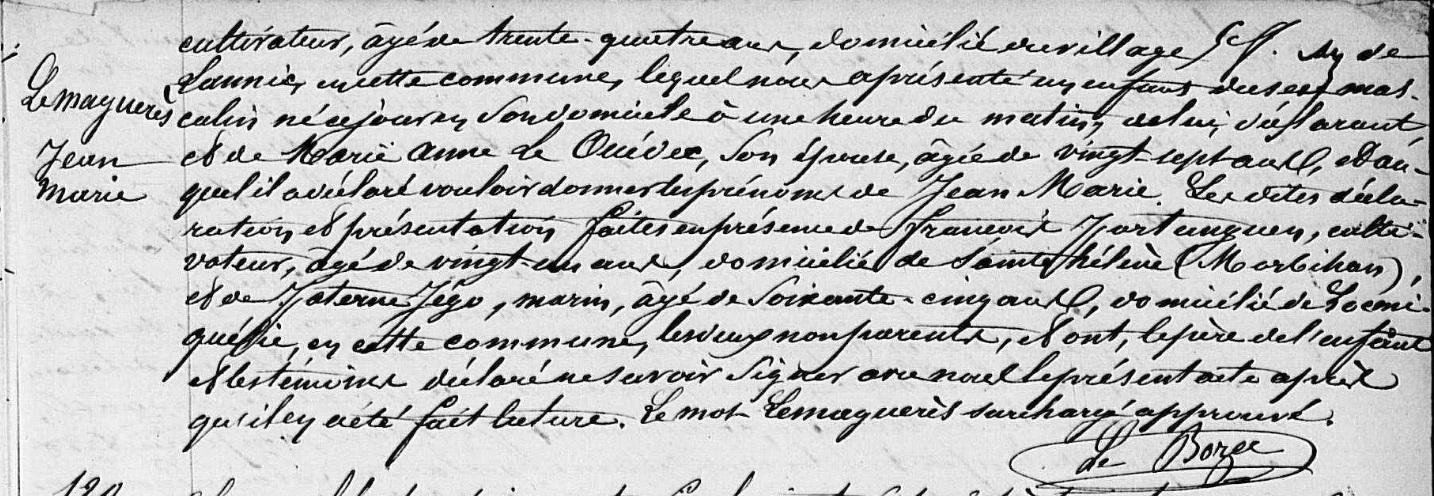 cultivateur, âgé de trente-quatre ans, domicilié du village de
Lannic, en cette commune, lequel nous a présenté un enfant du sexe mas-
Lemaguerès
culin né ce jour en son domicile à une heure du matin, de lui, déclarant
Jean
et de Marie Anne Le Quévec, son épouse, âgée de vingt-sept ans, et au-
Marie
quel il a déclaré vouloir donner les prénoms de Jean Marie. Les dites décla-
ration et présentation faites en présence de François, culti-
vateur, âgé de vingt-un ans, domicilié de Sainte hélène (Morbihan),
et de Paterne Jégo, marin, âgé de soixante-cinq ans, domicilié de Locmi-
quélic, en cette commune, les deux non parents, et ont, le père de l'enfant
et les témoins déclaré ne savoir signer avec nous le présent acte après
qu'il en a été fait lecture. Le mot Lemaguerès surchargé approuvé.
de Borgé
120